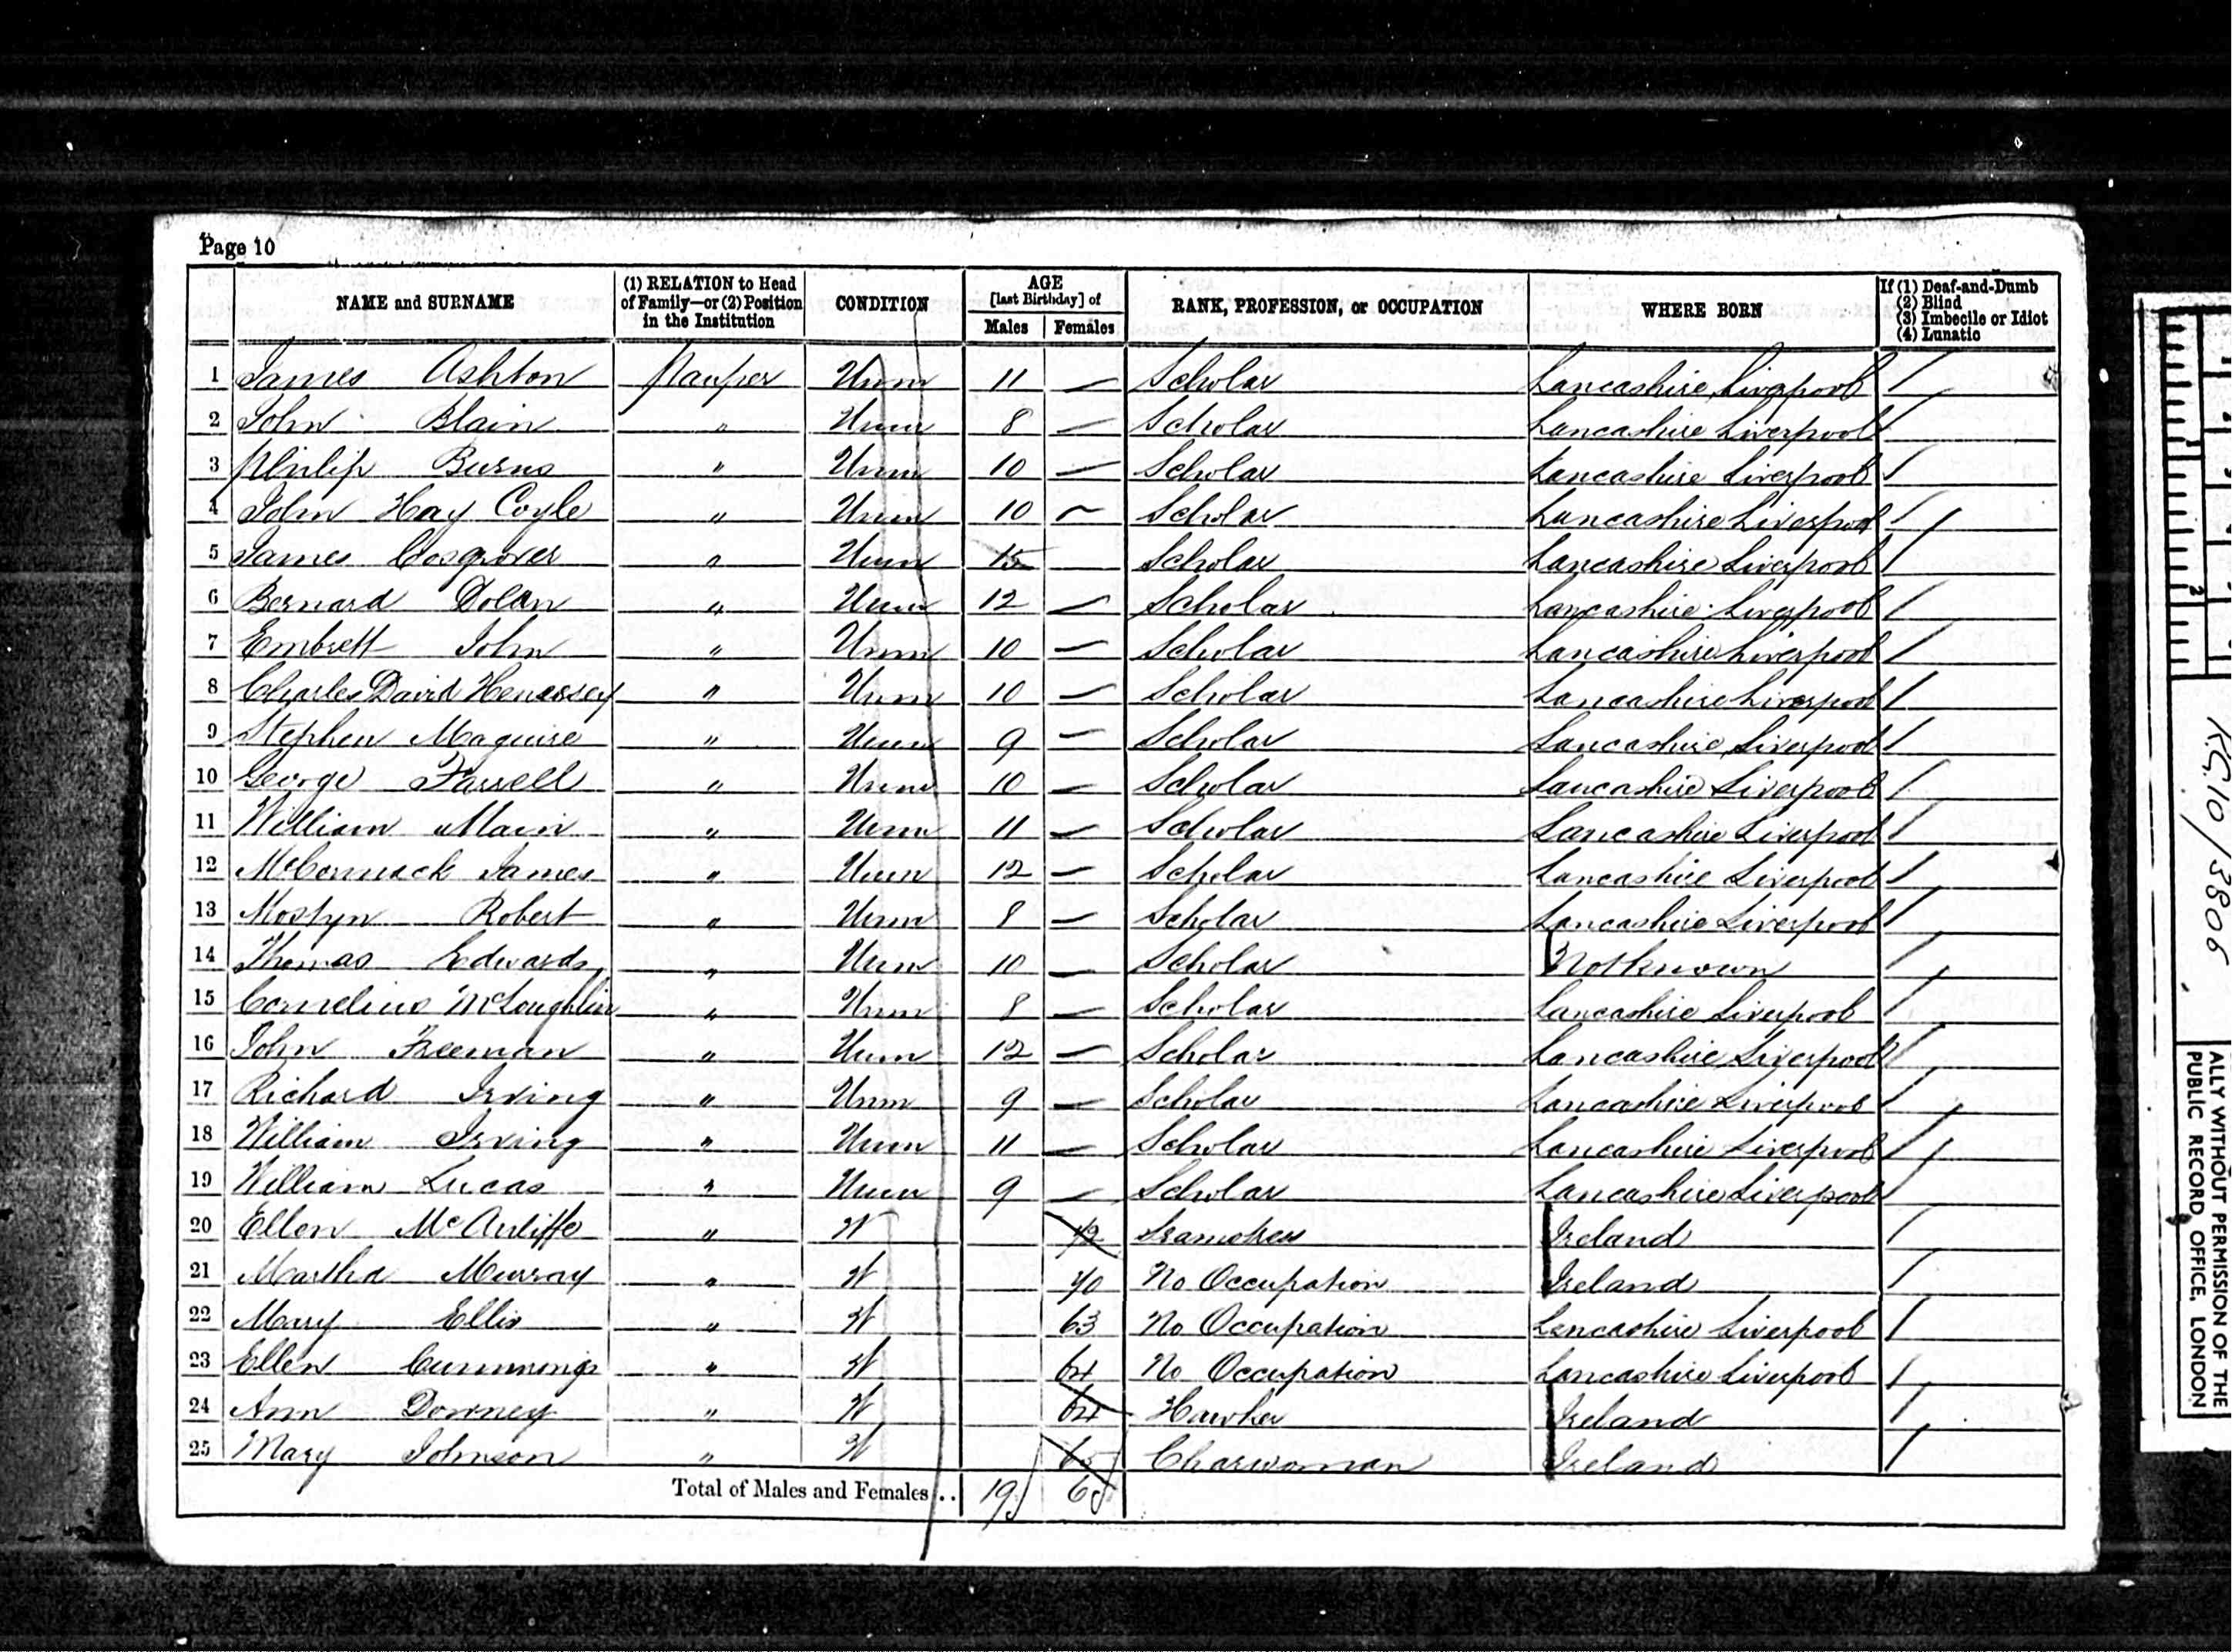 Page 10
NAME and SURNAME | (1) RELATION to Head of Family—or (2) Position in the Institution | CONDITION | AGE [last Birthday] of Males | Females | RANK, PROFESSION, or OCCUPATION | WHERE BORN | If (1) Deaf-and-Dumb (2) Blind (3) Imbecile or Idiot (4) Lunatic
1 James Ashton Pauper Unm 11 — Scholar Lancashire Liverpool
2 John Blain " Unm 8 — Scholar Lancashire Liverpool
3 Philip Burns " Unm 10 — Scholar Lancashire Liverpool
4 John Hay Coyle " Unm 10 — Scholar Lancashire Liverpool
5 James Cosgrover " Unm 15 Scholar Lancashire Liverpool
6 Bernard Dolan " Unm 12 — Scholar Lancashire Liverpool
7 Embrett John " Unm 10 — Scholar Lancashire Liverpool
8 Charles David Henessey " Unm 10 — Scholar Lancashire Liverpool
9 Stephen Maguire " Unm 9 — Scholar Lancashire Liverpool
10 George Farrell " Unm 10 — Scholar Lancashire Liverpool
11 William Main " Unm 11 — Scholar Lancashire Liverpool
12 McCormack James " Unm 12 — Scholar Lancashire Liverpool
13 Mostyn Robert " Unm 8 — Scholar Lancashire Liverpool
14 Thomas Edwards " Unm 10 — Scholar Not known
15 Cornelius McLoughlin " Unm 8 — Scholar Lancashire Liverpool
16 John Freeman " Unm 12 — Scholar Lancashire Liverpool
17 Richard Irving " Unm 9 — Scholar Lancashire Liverpool
18 William Irving " Unm 11 — Scholar Lancashire Liverpool
19 William Lucas " Unm 9 — Scholar Lancashire Liverpool
20 Ellen McAuliffe " W Ireland
21 Martha Murray " W 70 No Occupation Ireland
22 Mary Ellis " W 63 No Occupation Lancashire Liverpool
23 Ellen Cummings " W 64 No Occupation Lancashire Liverpool
24 Ann Downey " W 64 Hawker Ireland
25 Mary Johnson " W Charwoman Ireland
Total of Males and Females .. 19 6
R.G. 10/3806
ALLY WITHOUT PERMISSION OF THE
PUBLIC RECORD OFFICE, LONDON